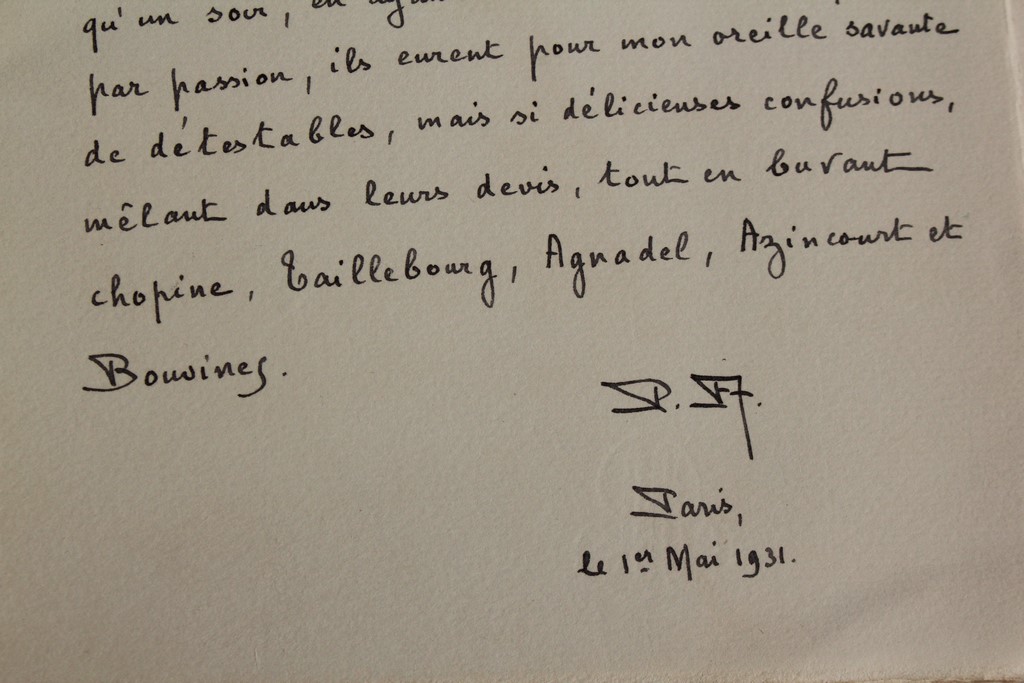 qu'un soir, en
par passion, ils eurent pour mon oreille savante
de détestables, mais si délicieuses confusions,
mêlant dans leurs devis, tout en buvant
chopine, Taillebourg, Agnadel, Azincourt et
Bouvines.
P. F.
Paris,
le 1er Mai 1931.